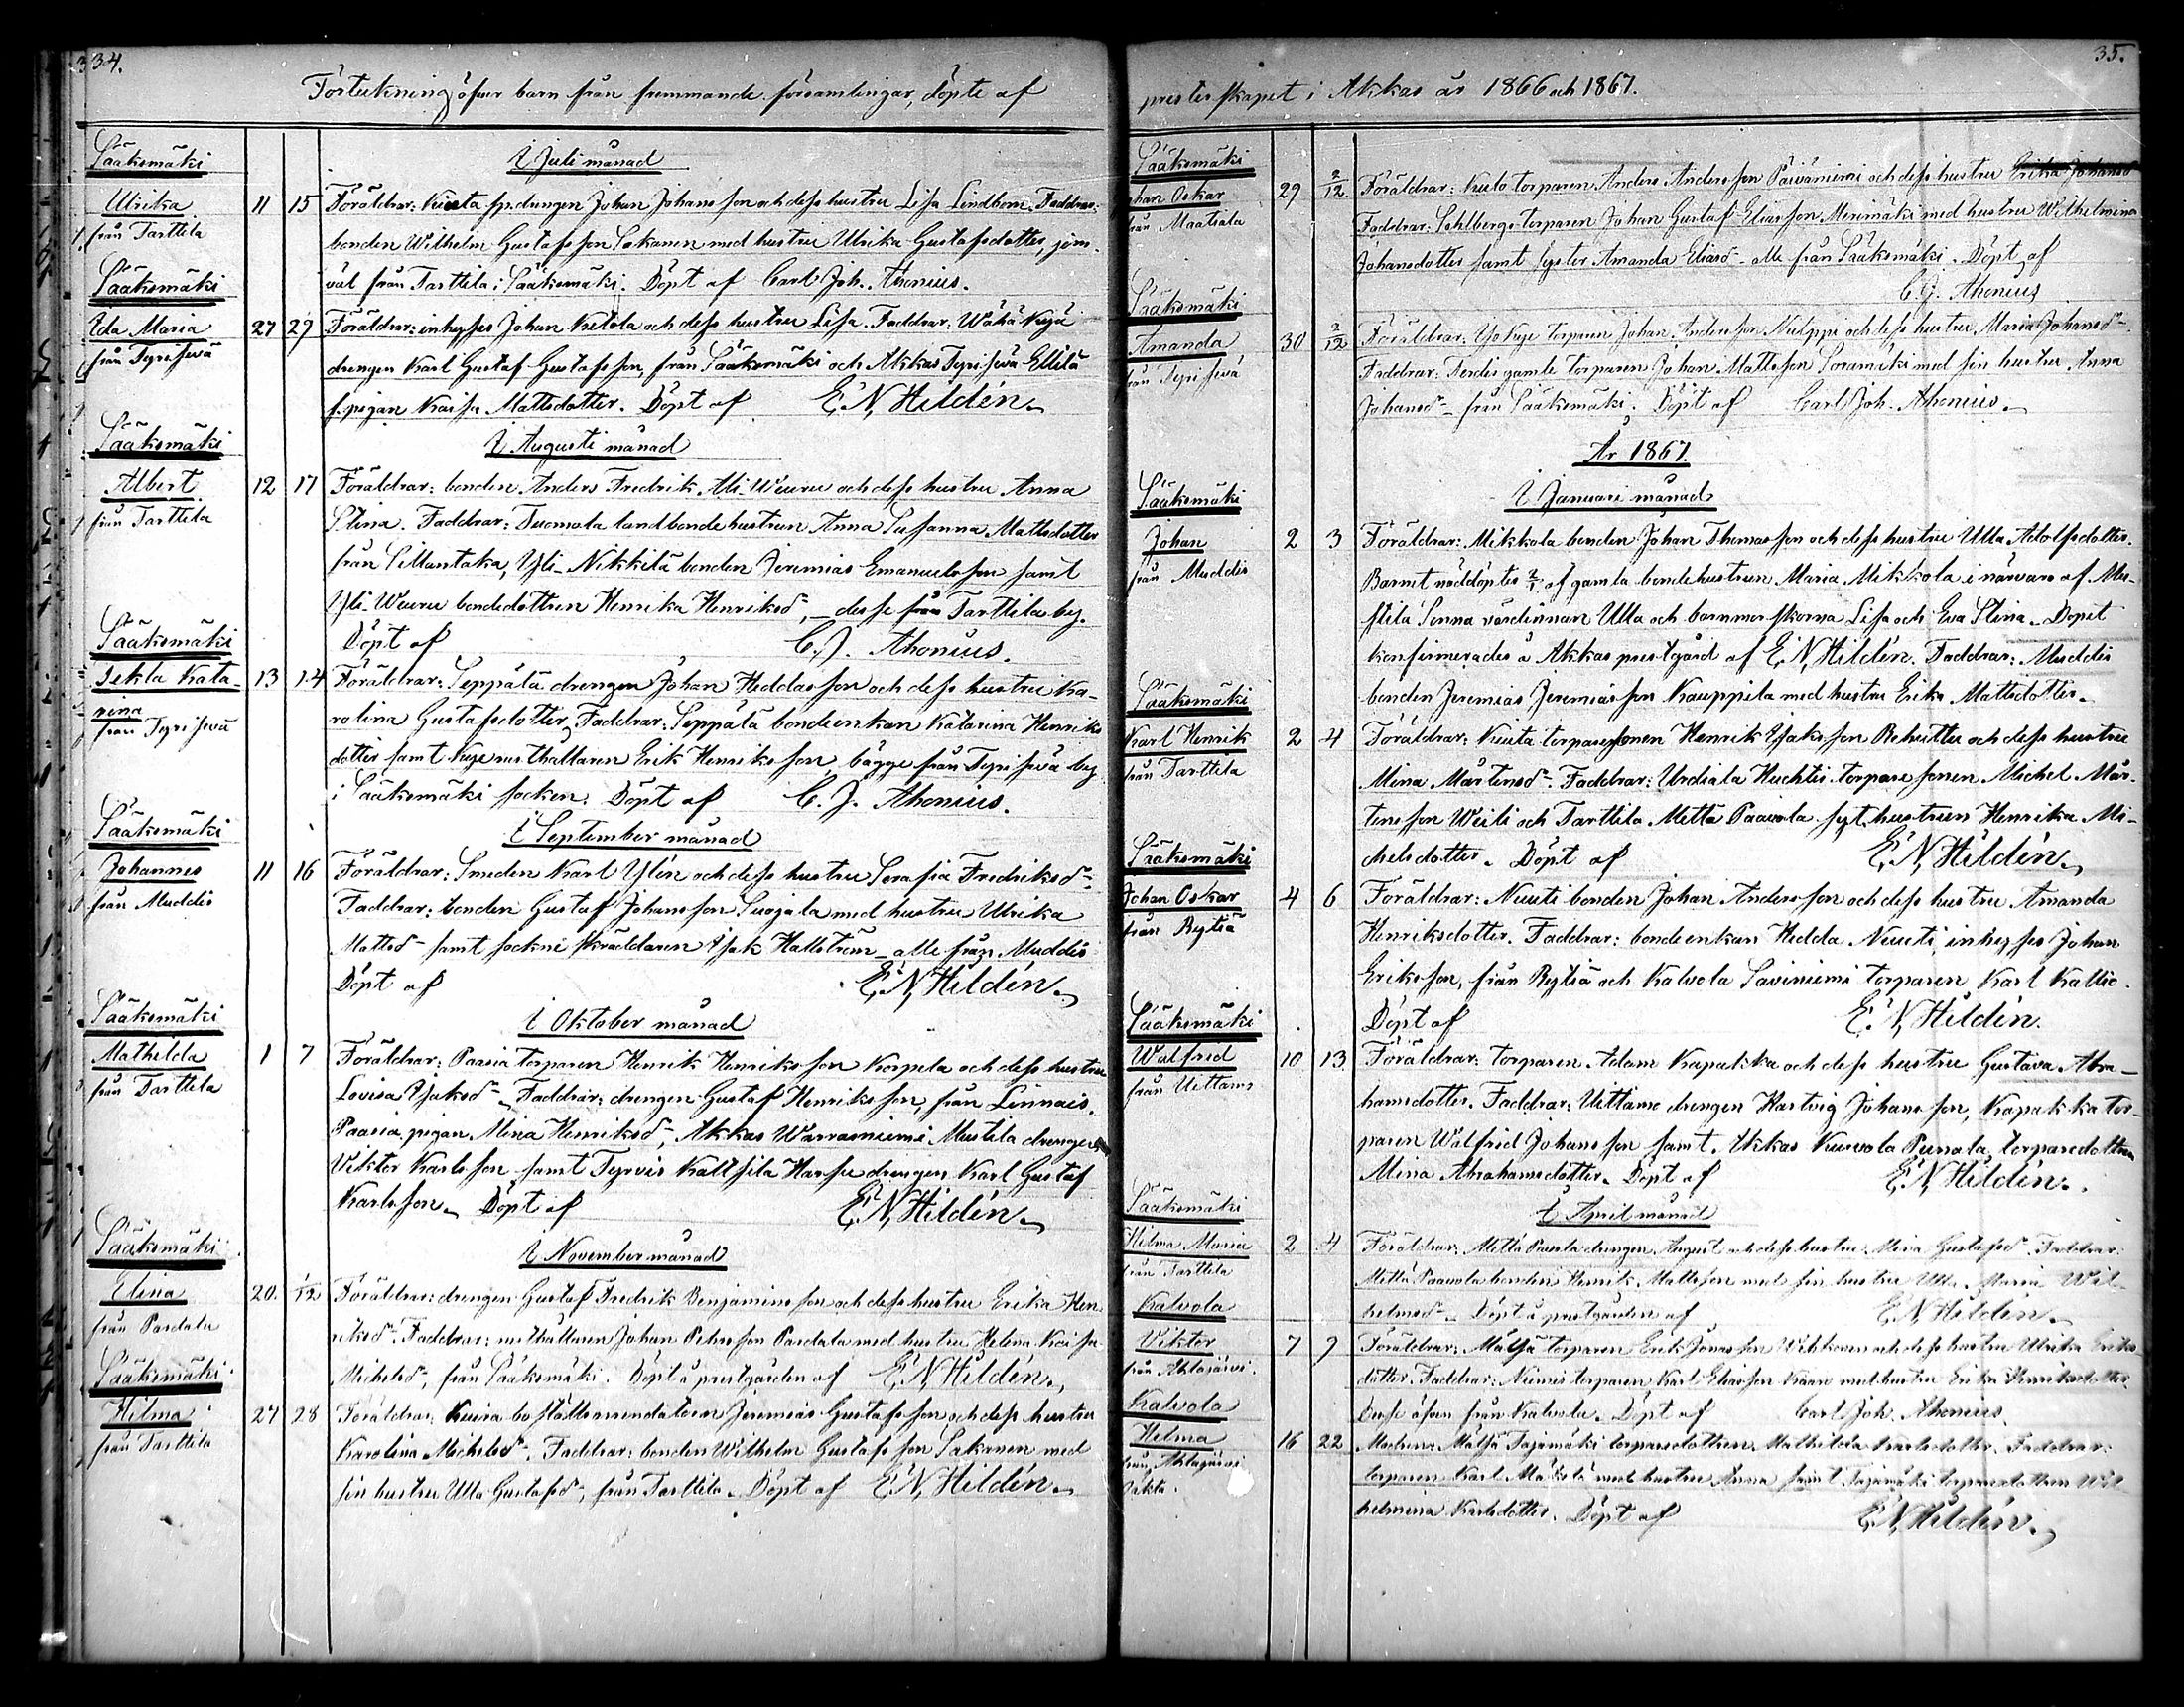 334.
Förteckning öfver barn från främmande församlingar, döpte af
Sääksmäki
I Juli månad
Ulrika 11 15 Föräldrar: Kuista sp. drengen Johan Johansson och dess hustru Lisa Lindbom. Faddrar:
från Tarttila bonden Wilhelm Gustafsson Sakanen med hustru Ulrika Gustafsdotter, jem-
Sääksmäki väl från Tarttila i Sääksmäki. Döpt af Carl Joh. Ahonius.
Ida Maria 27 29 Föräldrar: inhyses Johan Ketola och dess hustru Lisa. Faddrar: Wähä Kyjä
från Tyrisevä drengen Karl Gustaf Gustafsson, från Sääksmäki och Akkas Tyrisevä Ellilä
s. pigan Kaisa Mattsdotter. Döpt af E. N. Hildén.
Sääksmäki
I Augusti månad
Albert 12 17 Föräldrar: bonden Anders Fredrik Ali-Weuru och dess hustru Anna
från Tarttila Stina. Faddrar: Tuomala landbonde hustrun Anna Susanna Mattsdotter
från Sillantaka, Yli-Nikkilä bonden Jeremias Emanuelsson samt
Yli-Weuru bondedottren Henrika Henriksd- desse från Tarttila by.
Sääksmäki Döpt af C. J. Ahonius.
Tekla Kata- 13 14 Föräldrar: Seppälä drengen Johan Heddasson och dess hustru Ka-
rina rolina Gustafsdotter, Faddrar: Seppälä bondeenkan Katarina Henriks
från Tyrisevä dotter samt Kuje rusthållaren Erik Henriksson, bägge från Tyrisevä by
i Sääksmäki socken. Döpt af C. J. Ahonius.
Sääksmäki
I September månad
Johannes 11 16 Föräldrar: Smeden Karl Ylén och dess hustru Serafia Fredriksd-
från Muddis Faddrar: bonden Gustaf Johansson Suojala med hustru Ulrika
Mattsd- samt sockne skräddaren Isak Hallström - alle från Muddis
Döpt af E. N. Hildén.
Sääksmäki
I Oktober månad
Mathilda 1 7 Föräldrar: Paasia torparen Henrik Henriksson Korpela och dess hustru
från Tarttila Lovisa Isaksd- Faddrar: drengen Gustaf Henriksson, från Linnais,
Paasia pigan Mina Henriksd-, Akkas Warrasniemi Mustila drengen
Viktor Karlsson samt Tyrvis Kallsila Harju drengen Karl Gustaf
Karlsson. Döpt af E. N. Hildén.
Sääksmäki
I November månad
Elina 20. 1/12 Föräldrar: drengen Gustaf Fredrik Benjaminsson och dess hustru Erika Hen-
från Pardala riksd-. Faddrar: rusthållaren Johan Pehrsson Pardala med hustru Helena Kaisa
Sääksmäki Michelsd-, från Sääksmäki. Döpt å prestgården af E. N. Hildén.
Hilma 27 28 Föräldrar: Kuira boställsarrendatorn Jeremias Gustafsson och dess hustru
från Tarttila Karolina Michelsd-. Faddrar: bonden Wilhelm Gustafsson Sakanen med
sin hustru Ulla Gustafsd-, från Tarttila. Döpt af E. N. Hildén.
35.
presterskapet i Akkas år 1866 och 1867.
Sääksmäki
Johan Oskar 29 2/12 Föräldrar: Kusto torparen Anders Andersson Päiväniemi och dess hustru Erika Johansd
från Maatiala Faddrar: Sohlbergs torparen Johan Gustaf Eliasson Merimäki med hustru Wilhelmina
Johansdotter samt syster Amanda Eliasd- alle från Sääksmäki. Döpt af
Sääksmäki C. J. Ahonius
Amanda 30 2/12 Föräldrar: torparen Johan Andersson och dess hustru Maria Johansd-
från Tyrisevä Faddrar: gamle torparen Johan Mattsson Soramäki med sin hustru Anna
Johansd- från Sääksmäki. Döpt af Carl Joh. Ahonius.
År 1867.
Sääksmäki
I Januari månad
Johan 2 3 Föräldrar: Mikkola bonden Johan Thomasson och dess hustru Ulla Adolfsdotter.
från Muddis Barnet nöddöptes 2/1 af gamla bondehustrun Maria Mikkola i närvaro af Mu-
stila Sonna värdinnan Ulla och barnmorskorna Lisa och Eva Stina. Dopet
konfirmerades å Akkas prestgård af E. N. Hildén. Faddrar: Muddis
Sääksmäki bonden Jeremias Jeremiasson Kauppila med hustru Erika Mattsdotter.
Karl Henrik 2 4 Föräldrar: Kuuta torparesonen Henrik Isaksson Rekuttu och dess hustru
från Tarttila Mina Mårtensd-. Faddrar: Urdiala Huchtis torparesonen Michel Mår-
tensson Wiili och Tarttila Mettä Paavola syt. hustrun Henrika Mi-
Sääksmäki chelsdotter. Döpt af E. N. Hildén.
Johan Oskar 4 6 Föräldrar: Nuuti bonden Johan Andersson och dess hustru Amanda
från Rytiä Henriksdotter. Faddrar: bondeenkan Hedda Nuuti, inhyses Johan
Eriksson, från Rytiä och Kalvola Saviniemi torparen Karl Kallio.
Sääksmäki Döpt af E. N. Hildén.
Walfrid 10 13 Föräldrar: torparen Adam Kapakka och dess hustru Gustava Abra-
från Uittamo hamsdotter. Faddrar: Uittamo drengen Hartvig Johansson, Kapakka tor-
paren Walfrid Johansson samt Akkas Kurvola Punala torparedottren
Mina Abrahamsdotter. Döpt af E. N. Hildén.
Sääksmäki
I April månad
Hilma Maria 2 4 Föräldrar: Mettä Paavola drengen August och dess hustru Mina Gustafsd-. Faddrar:
från Tarttila Mettä Paavola bonden Henrik Mattsson med sin hustru Ulla Maria Wil-
Kalvola helmsd-. Döpt å prestgården af E. N. Hildén.
Viktor 7 9 Föräldrar: Mälsä torparen Erik Jonasson och dess hustru Ulrika Eriks
från Ahlajärvi. dotter. Faddrar: torparen Karl Eliasson med hustru Erika Henriksdotter
Kalvola Desse äfven från Kalvola. Döpt af Carl Joh. Ahonius.
Helma 16 22 Modren: Mälsä Tajamäki torparedottren Mathilda Karlsdotter. Faddrar:
från Ahlajärvi torparen Karl Mäkelä med hustru Anna samt Tajamäki torparedottren Wil
oäkta. helmina Karlsdotter. Döpt af E. N. Hildén.